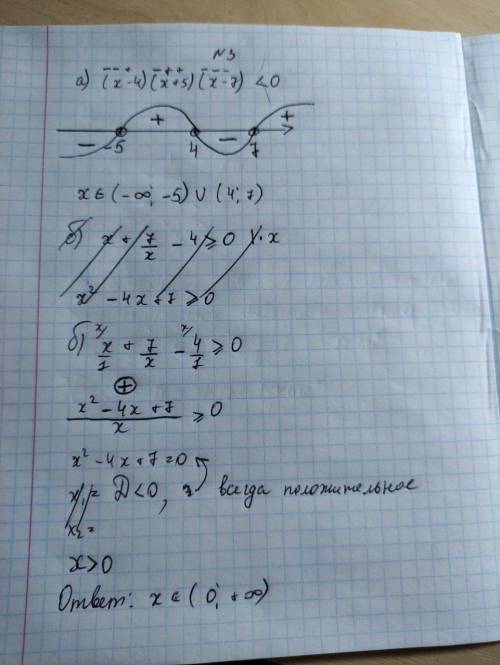 N3
а) (x-4)(x+5)(x-7) <0
- + - +
-5 4 7
x ∈ (-∞; -5) ∪ (4; 7)
б) x + 7/x - 4 ≥ 0 |· x
x² - 4x + 7 ≥ 0
б) x/1 + 7/x - 4/1 ≥ 0
+
(x² - 4x + 7)/x ≥ 0
x² - 4x + 7 = 0
x₁ = D < 0, всегда положительное
x₂ =
x > 0
Ответ: x ∈ (0; +∞)